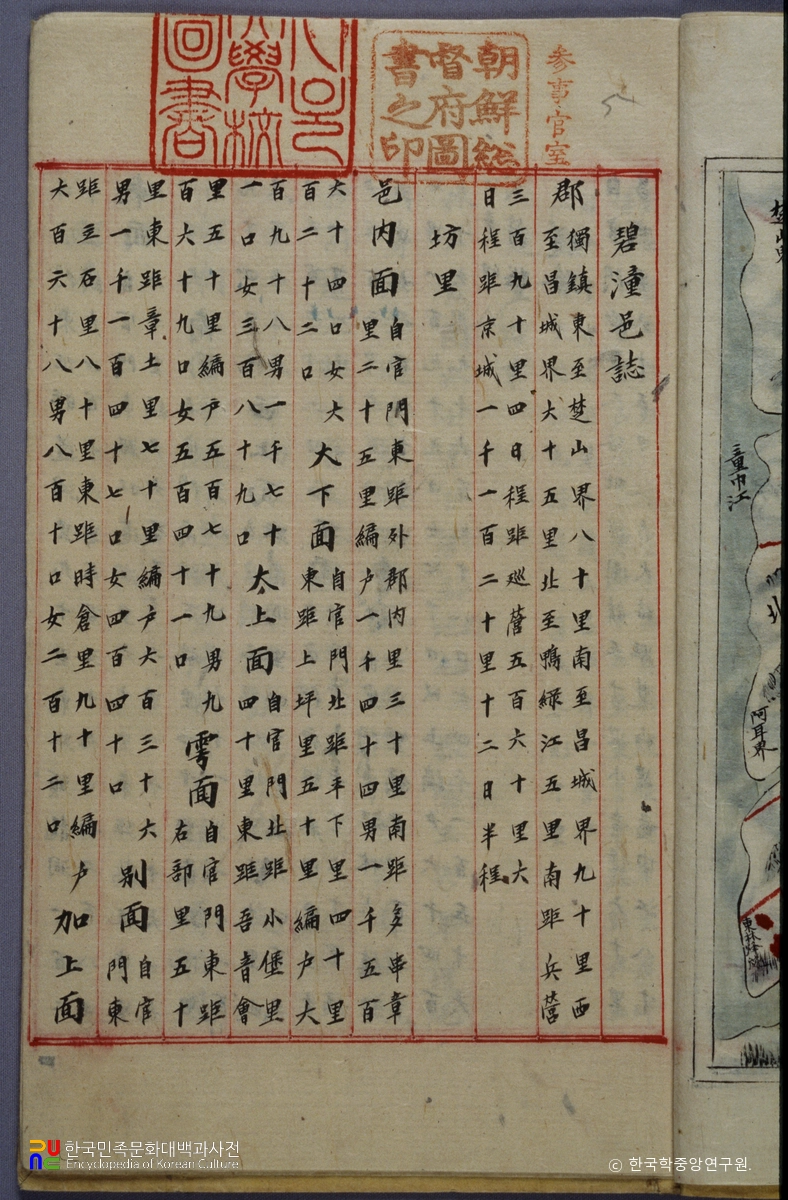 参事官室
朝鮮総
督府圖
書之印
學校
圖書
碧潼邑誌
郡
獨鎮東至楚山界八十里南至昌城界九十里西
至昌城界六十五里北至鴨緑江五里南距兵營
三百九十里四日程距巡營五百六十里六
日程距京城一千一百二十里十二日半程
坊里
邑内面
自官門東距外郡内里三十里南距多串章
里二十五里編户一千四十四男一千五百
六十四口女六
百二十二口
大下面
自官門北距平下里四十里
東距上坪里五十里編户六
百九十八男一千七十
一口女三百八十九口
太上面
自官門北距小堡里
四十里東距吾音會
里五十里編户五百七十九男九
百六十九口女五百四十一口
雩面
自官門東距
右部里五十
里東距章土里七十里編户六百三十六
男一千一百四十七口女四百四十口
別面
自官
門東
距立石里八十里東距時倉里九十里編户
六百六十八男八百十口女二百十二口
加上面
童巾江
北
阿耳界
한국민족문화대백과사전
Encyclopedia of Korean Culture
© 한국학중앙연구원.